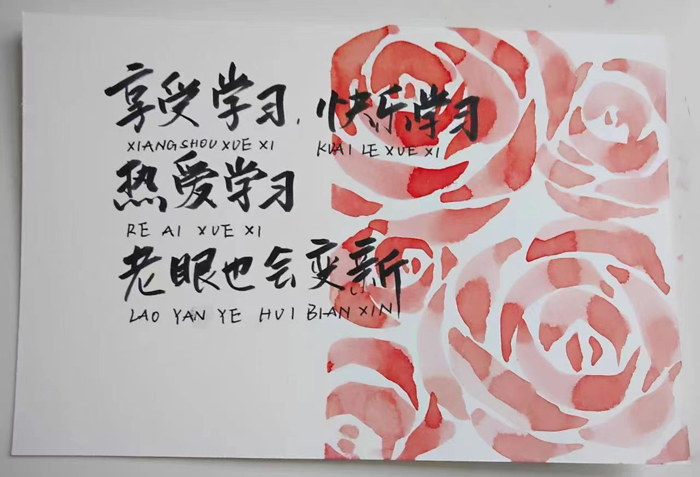 享受学习，快乐学习
XIANGSHOU XUE XI KUAI LE XUE XI
热爱学习
RE AI XUE XI
老眼也会变新
LAO YAN YE HUI BIAN XIN